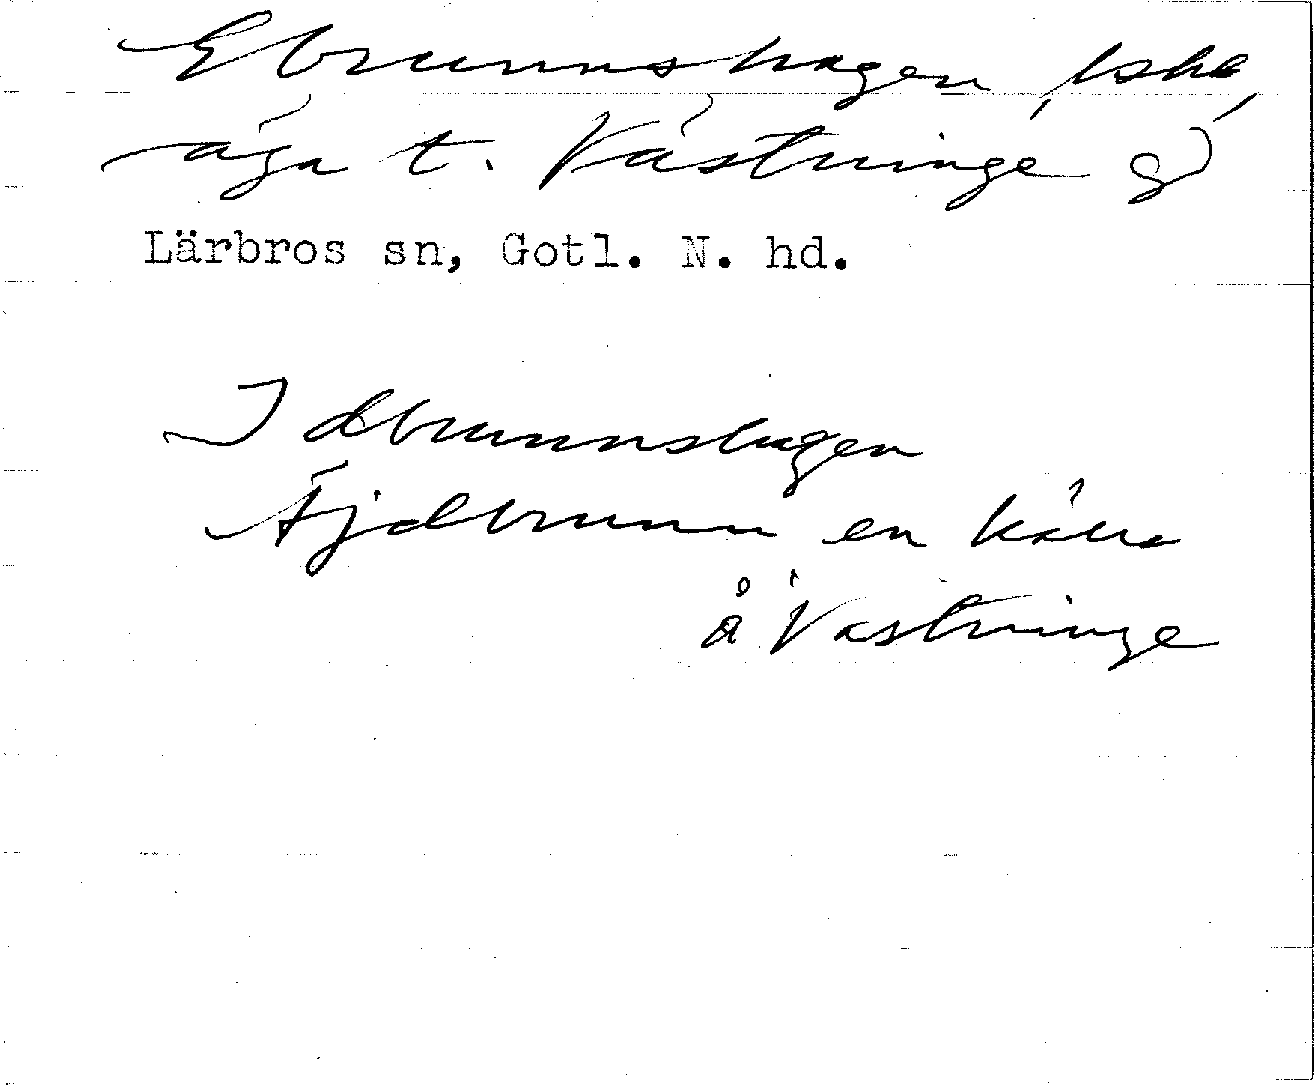 Ebrunnshagen,
äga t. Västninge g)
Lärbros sn, Gotl. N. hd.
Idbrunnshagen
Äjdbrunn en källa
å Västninge